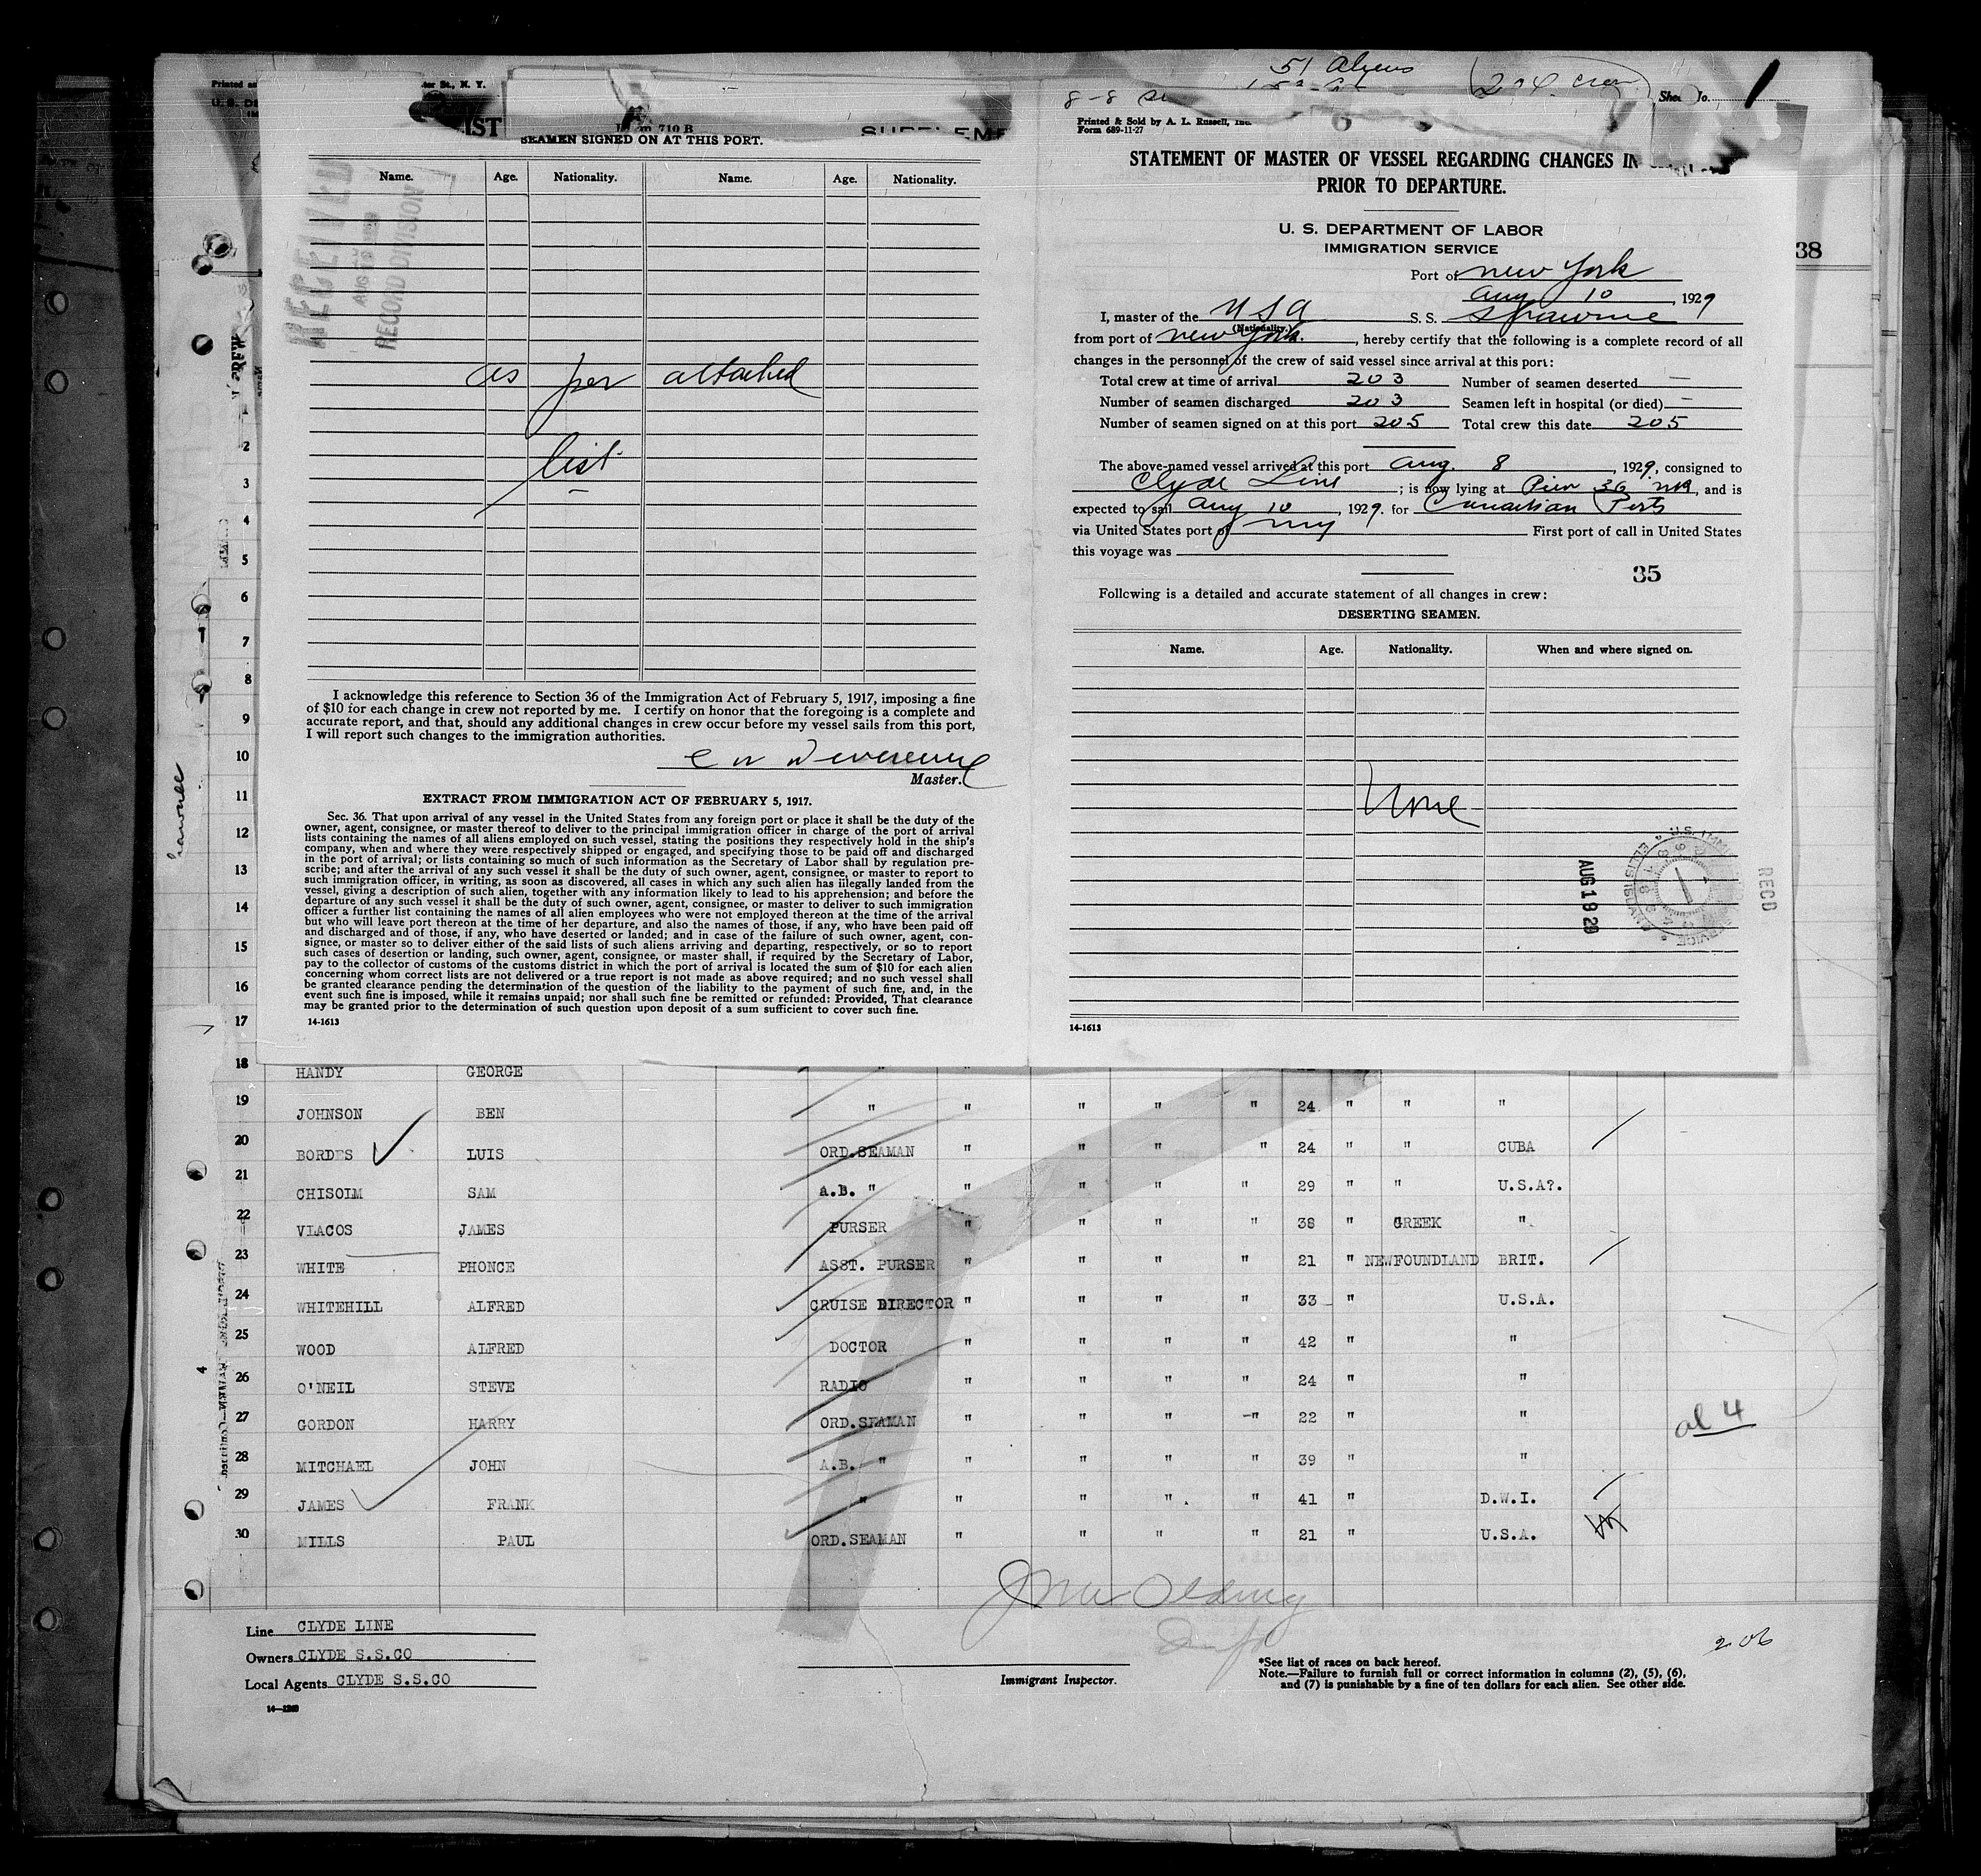 51 Aliens
204 crew
8-8
Sheet No. 1
IST
Form 710 B
SEAMEN SIGNED ON AT THIS PORT.
Name. Age. Nationality. Name. Age. Nationality.
RECEIVED
RECORD DIVISION
as per attached
list
I acknowledge this reference to Section 36 of the Immigration Act of February 5, 1917, imposing a fine
of $10 for each change in crew not reported by me. I certify on honor that the foregoing is a complete and
accurate report, and that, should any additional changes in crew occur before my vessel sails from this port,
I will report such changes to the immigration authorities.
Master.
EXTRACT FROM IMMIGRATION ACT OF FEBRUARY 5, 1917.
Sec. 36. That upon arrival of any vessel in the United States from any foreign port or place it shall be the duty of the
owner, agent, consignee, or master thereof to deliver to the principal immigration officer in charge of the port of arrival
lists containing the names of all aliens employed on such vessel, stating the positions they respectively hold in the ship's
company, when and where they were respectively shipped or engaged, and specifying those to be paid off and discharged
in the port of arrival; or lists containing so much of such information as the Secretary of Labor shall by regulation pre-
scribe; and after the arrival of any such vessel it shall be the duty of such owner, agent, consignee, or master to report to
such immigration officer, in writing, as soon as discovered, all cases in which any such alien has illegally landed from the
vessel, giving a description of such alien, together with any information likely to lead to his apprehension; and before the
departure of any such vessel it shall be the duty of such owner, agent, consignee, or master to deliver to such immigration
officer a further list containing the names of all alien employees who were not employed thereon at the time of the arrival
but who will leave port thereon at the time of her departure, and also the names of those, if any, who have been paid off
and discharged and of those, if any, who have deserted or landed; and in case of the failure of such owner, agent, con-
signee, or master so to deliver either of the said lists of such aliens arriving and departing, respectively, or so to report
such cases of desertion or landing, such owner, agent, consignee, or master shall, if required by the Secretary of Labor,
pay to the collector of customs of the customs district in which the port of arrival is located the sum of $10 for each alien
concerning whom correct lists are not delivered or a true report is not made as above required; and no such vessel shall
be granted clearance pending the determination of the question of the liability to the payment of such fine, and, in the
event such fine is imposed, while it remains unpaid; nor shall such fine be remitted or refunded: Provided, That clearance
may be granted prior to the determination of such question upon deposit of a sum sufficient to cover such fine.
14-1613
Printed & Sold by A. L. Russell, Inc.
Form 689-11-27
STATEMENT OF MASTER OF VESSEL REGARDING CHANGES IN
PRIOR TO DEPARTURE.
U. S. DEPARTMENT OF LABOR
IMMIGRATION SERVICE
38
Port of New York
Aug 10, 1929
I, master of the USA S. S. Shawnee
(Nationality.)
from port of New York., hereby certify that the following is a complete record of all
changes in the personnel of the crew of said vessel since arrival at this port:
Total crew at time of arrival 203 Number of seamen deserted —
Number of seamen discharged 203 Seamen left in hospital (or died) —
Number of seamen signed on at this port 205 Total crew this date 205
The above-named vessel arrived at this port Aug. 8, 1929, consigned to
Clyde Line; is now lying at Pier 36 NR, and is
expected to sail Aug 10, 1929. for Canadian Ports
via United States port of NY First port of call in United States
this voyage was
35
Following is a detailed and accurate statement of all changes in crew:
DESERTING SEAMEN.
Name. Age. Nationality. When and where signed on.
None
AUG 19 29
RECD
14-1613
1
2
3
4
5
6
7
8
9
10
11
12
13
14
15
16
17
18 HANDY GEORGE "
19 JOHNSON BEN " " " " " 24 " " "
20 BORDES LUIS ORD.SEAMAN " " " " 24 " " CUBA
21 CHISOLM SAM A.B. " " " " " 29 " " U.S.A?.
22 VLACOS JAMES PURSER " " " " 38 " GREEK "
23 WHITE PHONCE ASST. PURSER " " " " 21 " NEWFOUNDLAND BRIT.
24 WHITEHILL ALFRED CRUISE DIRECTOR " " " " 33 " U.S.A.
25 WOOD ALFRED DOCTOR " " " " 42 " "
26 O'NEIL STEVE RADIO " " " " 24 " "
27 GORDON HARRY ORD.SEAMAN " " " " 22 " "
al 4
28 MITCHAEL JOHN A.B. " " " " " 39 " "
29 JAMES FRANK " " " " " 41 " D.W.I.
30 MILLS PAUL ORD.SEAMAN " " " " 21 " U.S.A.
Line CLYDE LINE
Owners CLYDE S.S.CO
Local Agents CLYDE S.S.CO
14—1240
Immigrant Inspector.
206
*See list of races on back hereof.
Note.—Failure to furnish full or correct information in columns (2), (5), (6),
and (7) is punishable by a fine of ten dollars for each alien. See other side.